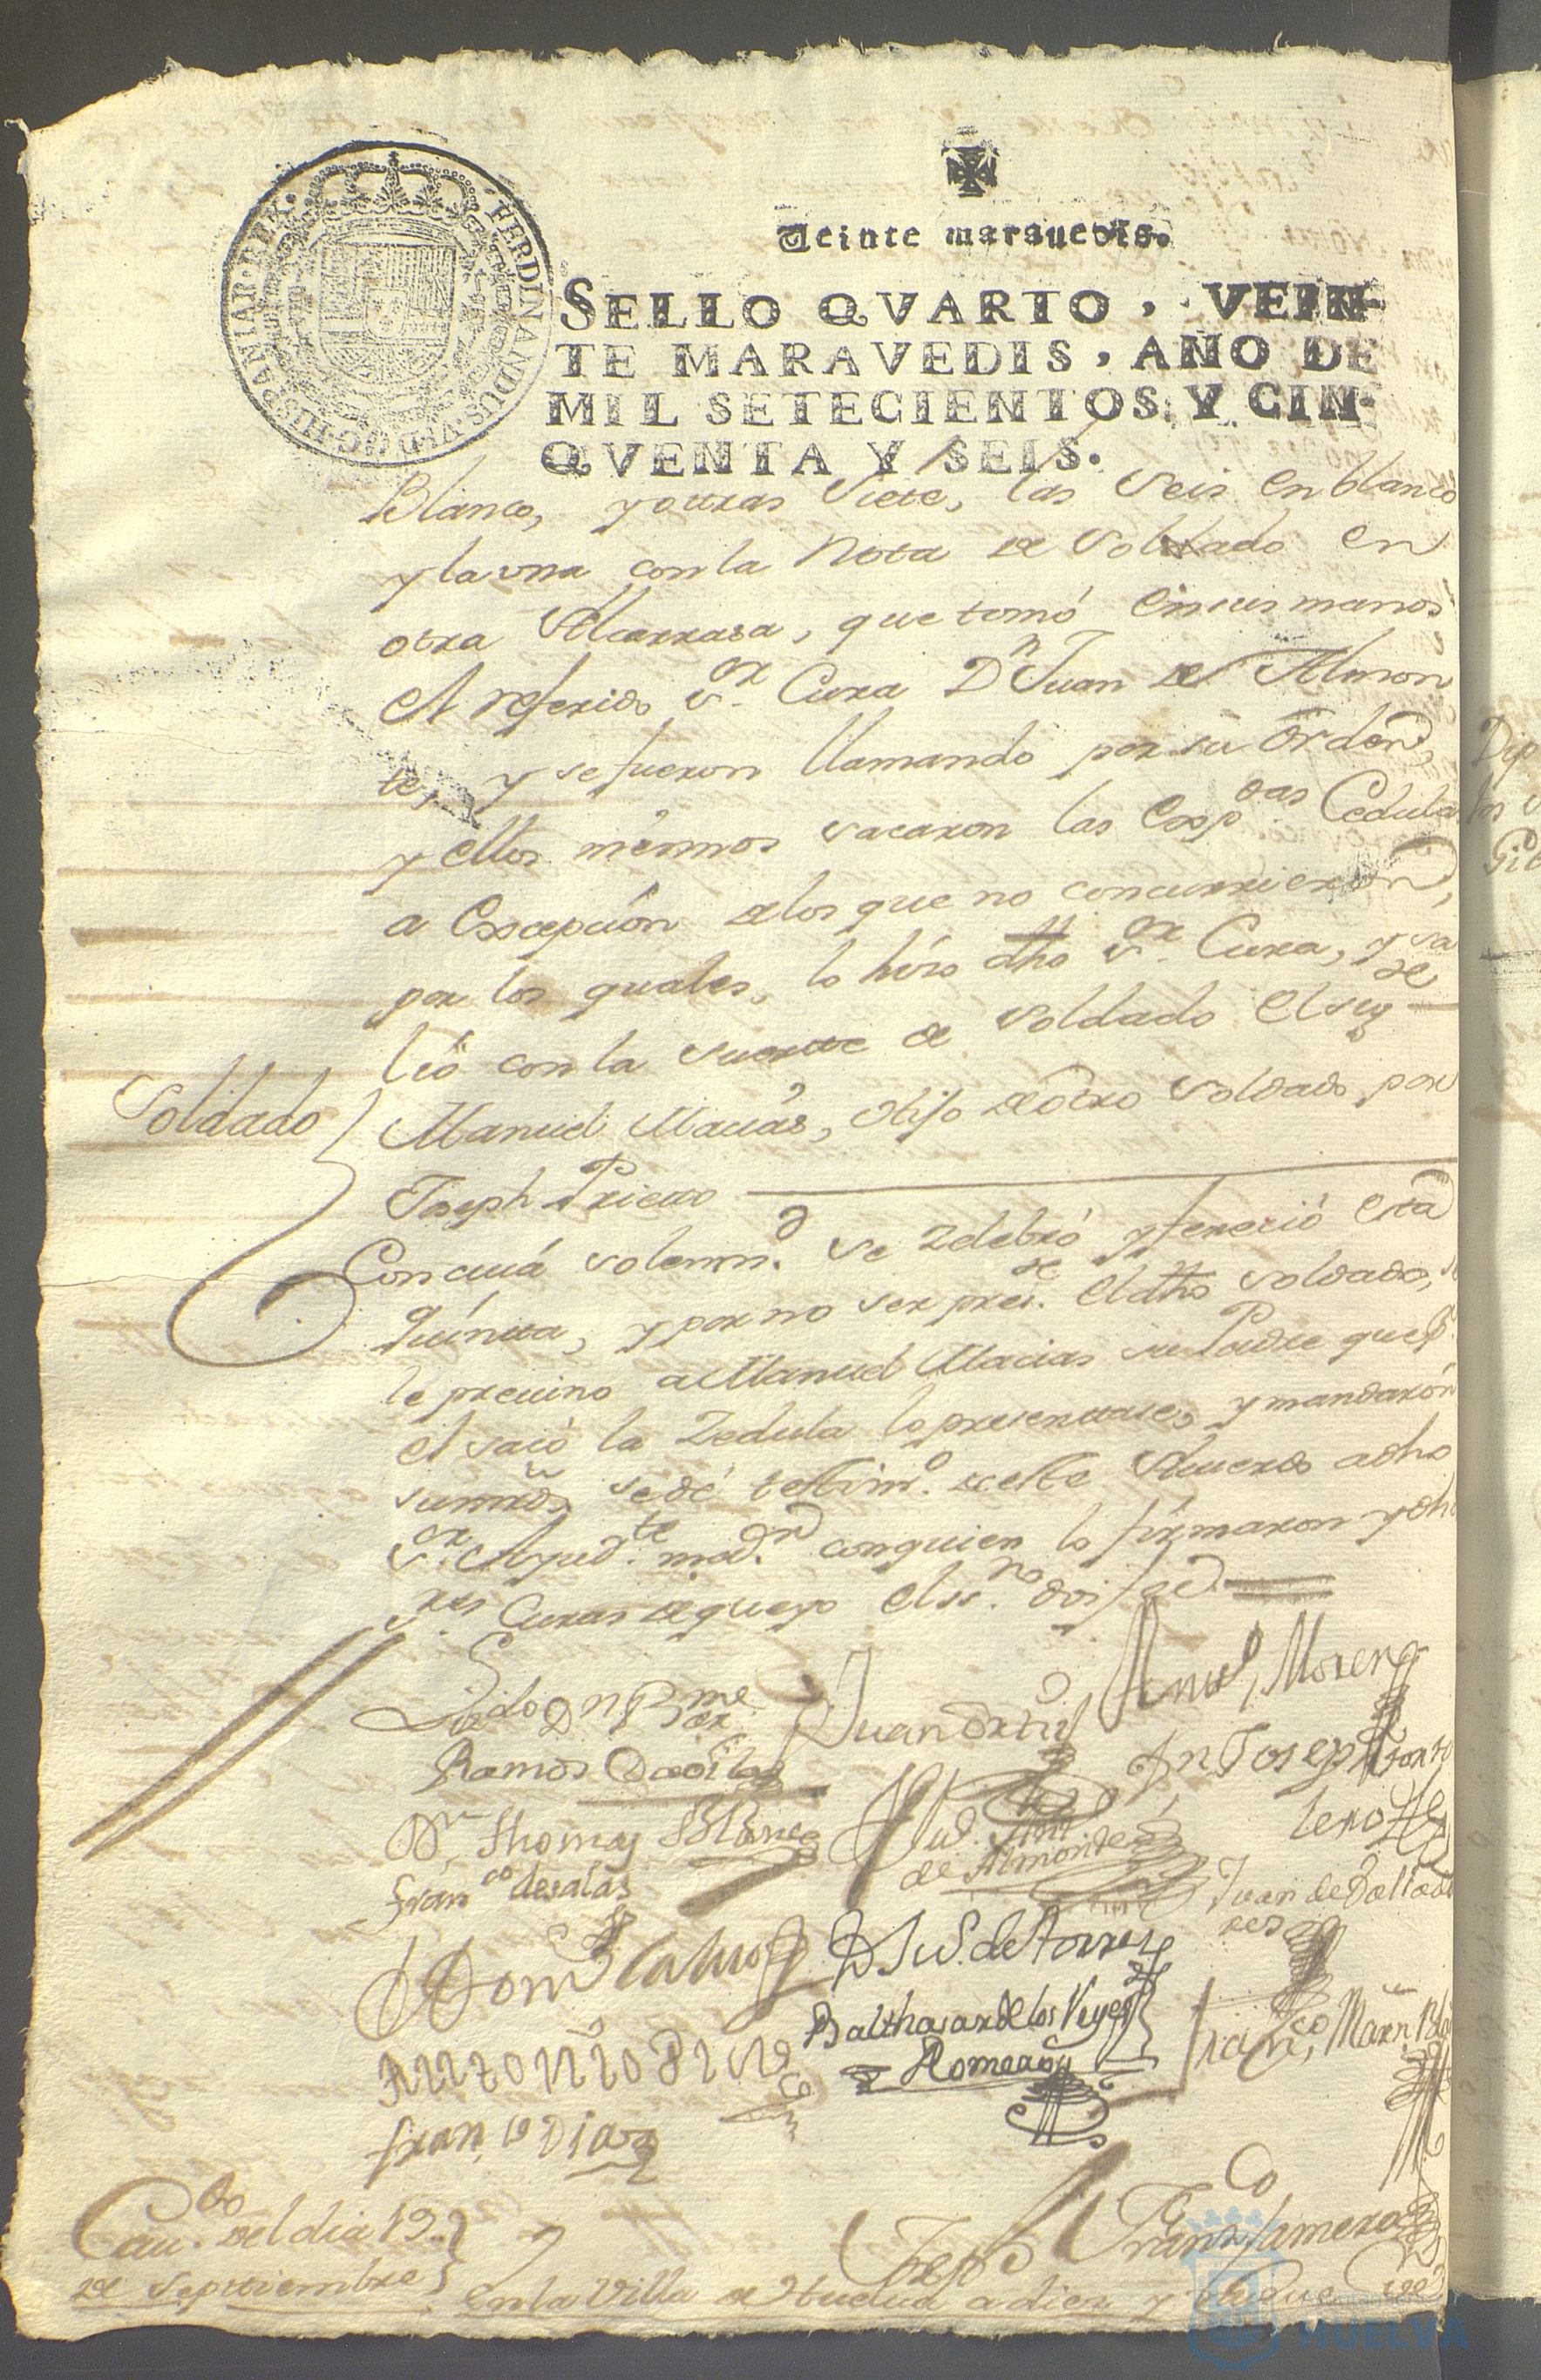 FERDINANDUS·VI·D·G·HISPANIAR·REX·
Veinte marauedis.
SELLO QVARTO, VEIN-
TE MARAVEDIS, AÑO DE
MIL SETECIENTOS Y CIN-
QVENTA Y SEIS.
Blanco, y otras Siete, las Seis en blanco
y la vna con la Nota de Soldado en
otra Alcarrasa, que tomó en sus manos
el referido Sor. Cura Dn Juan de Almon
te, y se fueron llamando por su orden,
y ellos mismos sacaron las Cedulas
a Excepcion de los que no concurrieron,
por los quales, lo hizo dho Sor. Cura, y sa
lió con la suerte de Soldado el sigte
Soldado
Manuel Macias, Hijo de otro Soldado por
Joseph Prieto
Con cuia solemnd. se Zelebró y fenecio esta
Quinta, y por no ser pres.te el dho Soldado, se
le preuino a Manuel Macias su Padre que pr.
el sacó la Zedula lo presentase, y mandaron
sus mrds. se dé testimo. de este Acuerdo a dho
Sor. Ayudte. con quien lo firmaron y dhos
Sres. Curas de que yo el ssno. doi fee
Lizdo Dn Bme
Ramos Dauila
Juan Ortiz
Manuel Moreno
Dn Joseph
Dr. Thomas Blanco
de Almonte
Franco de Salas
Juan de
D Ju. de Torres
Balthasar de los Reyes
Romero
Franco Marn
Antonio
Franco Diaz
Cauo. del dia 19
de Septiembre
Franco Jamera
En la Villa de Huelua a diez y nueue de
HUELVA